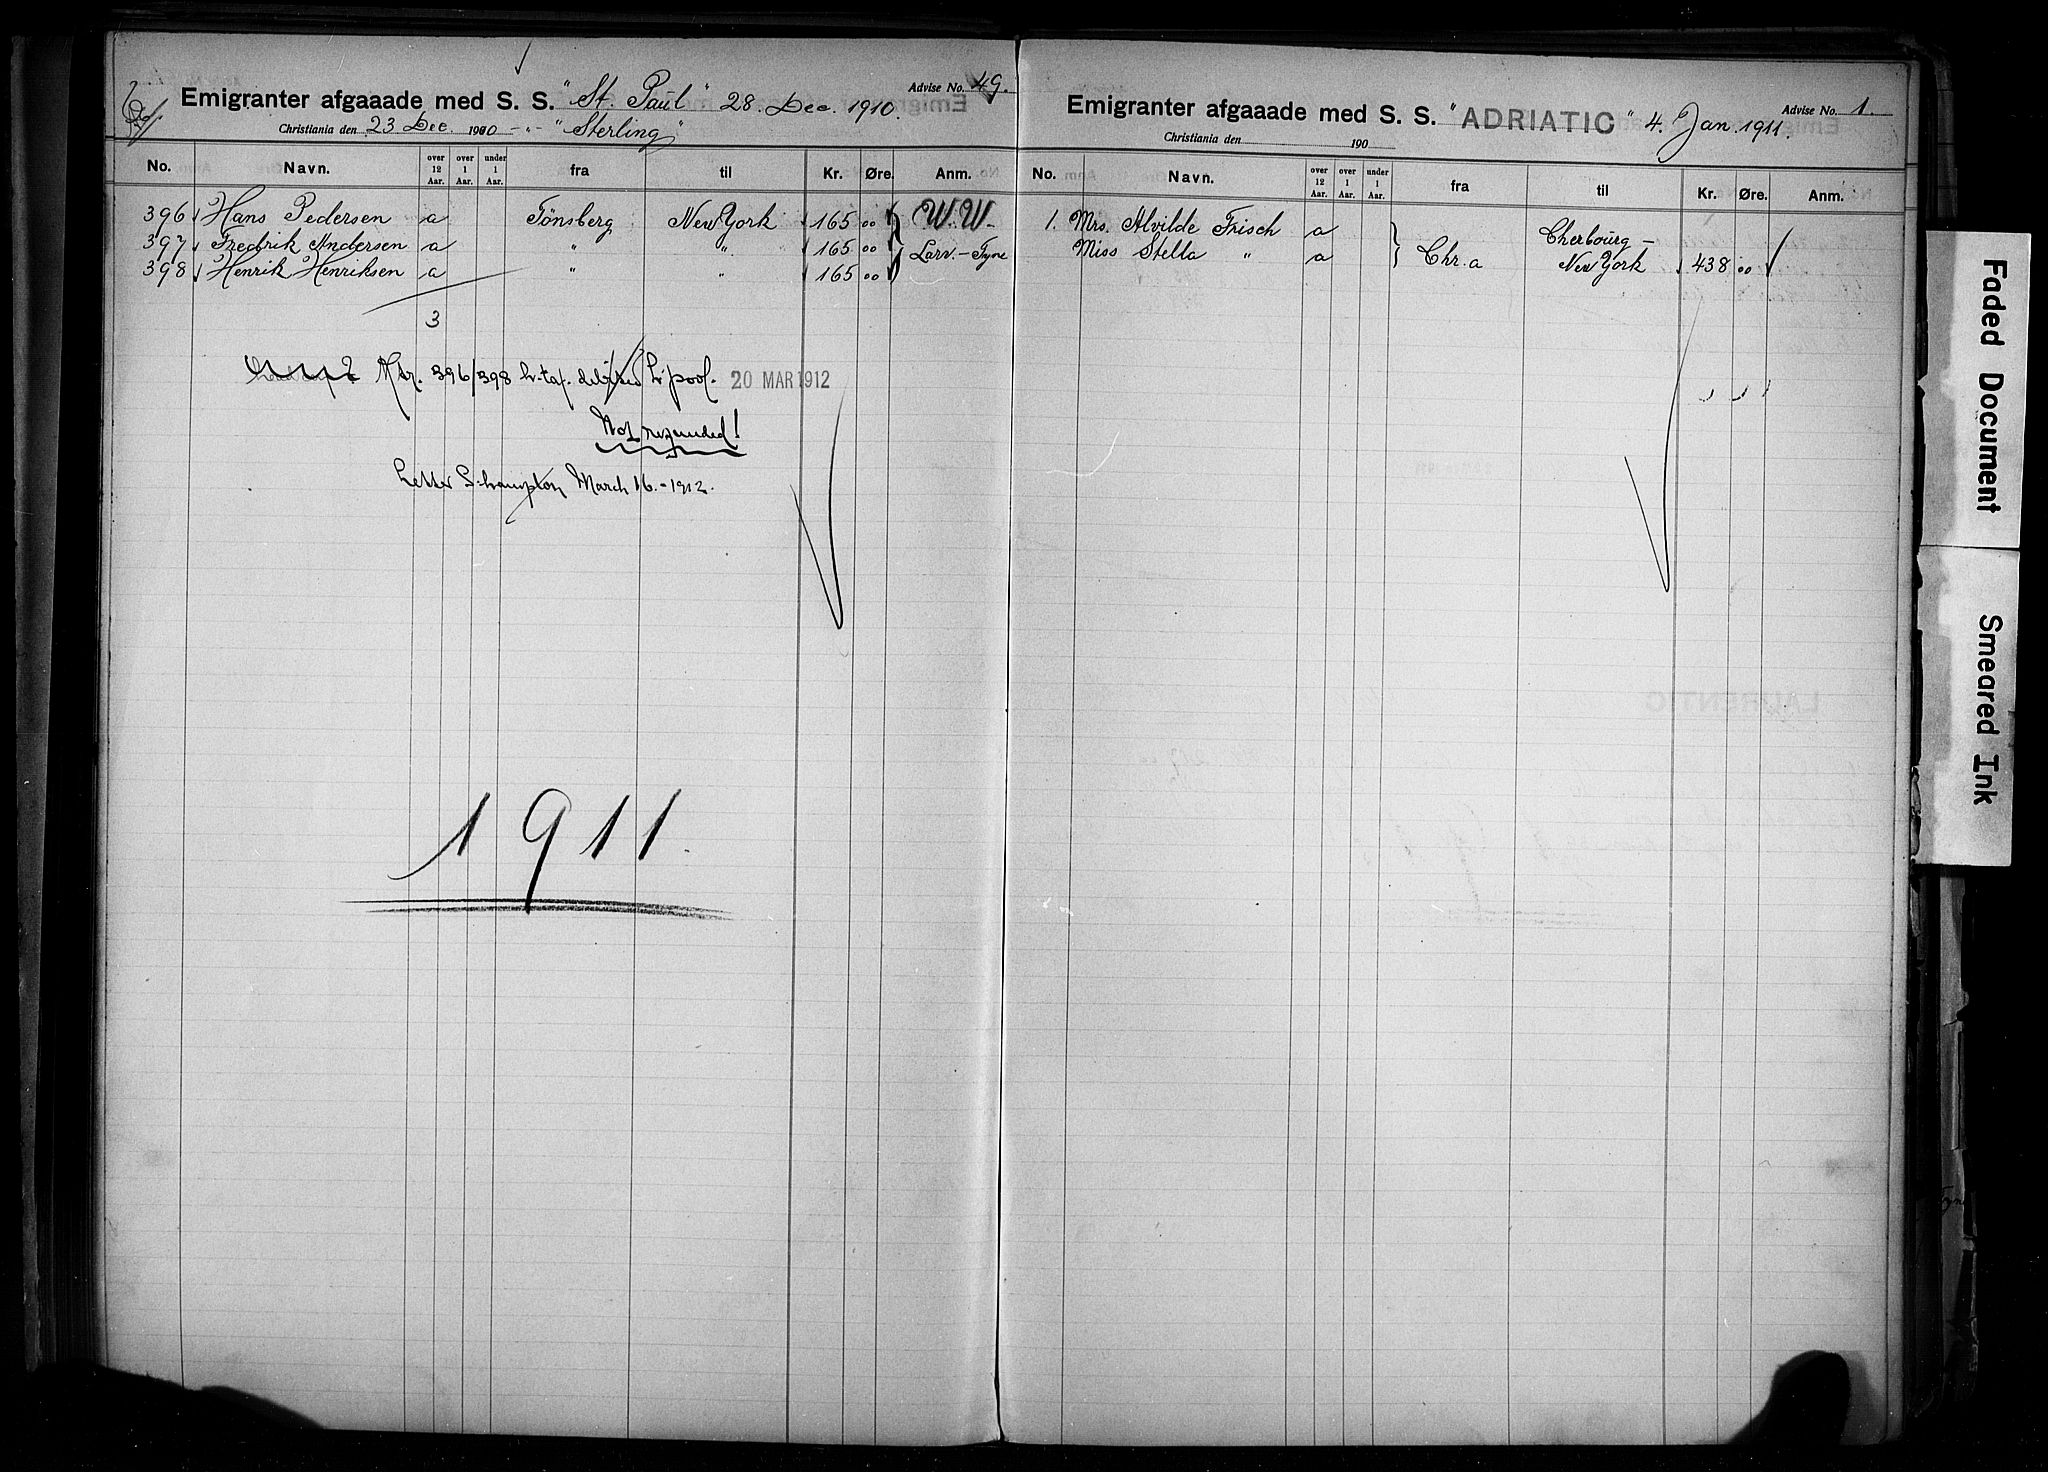 Advise No. 49.
Emigranter afgaaade med S. S. "St. Paul" 28. Dec. 1910.
Christiania den 23 Dec. 1910 -"- "Sterling"
No. Navn. over 12 Aar. over 1 Aar. under 1 Aar. fra til Kr. Øre. Anm.
396 Hans Pedersen a Tönsberg New York 165 00 W. W.
397 Fredrik Andersen a " " 165 00 Larv.-Tyne
398 Henrik Henriksen a " " 165 00
3
Ntr. 396/398 L'pool. 20 MAR 1912
Not refunded!
Letter S:hampton March 16.-1912.
1911.
Advise No. 1.
Emigranter afgaaade med S. S. "ADRIATIC" 4. Jan. 1911.
Christiania den 190
No. Navn. over 12 Aar. over 1 Aar. under 1 Aar. fra til Kr. Øre. Anm.
1. Mrs. Alvilde Frisch a } Chr.a Cherbourg-
Miss Stella " a New York 438 00
LAURENTIC
Faded Document
Smeared Ink